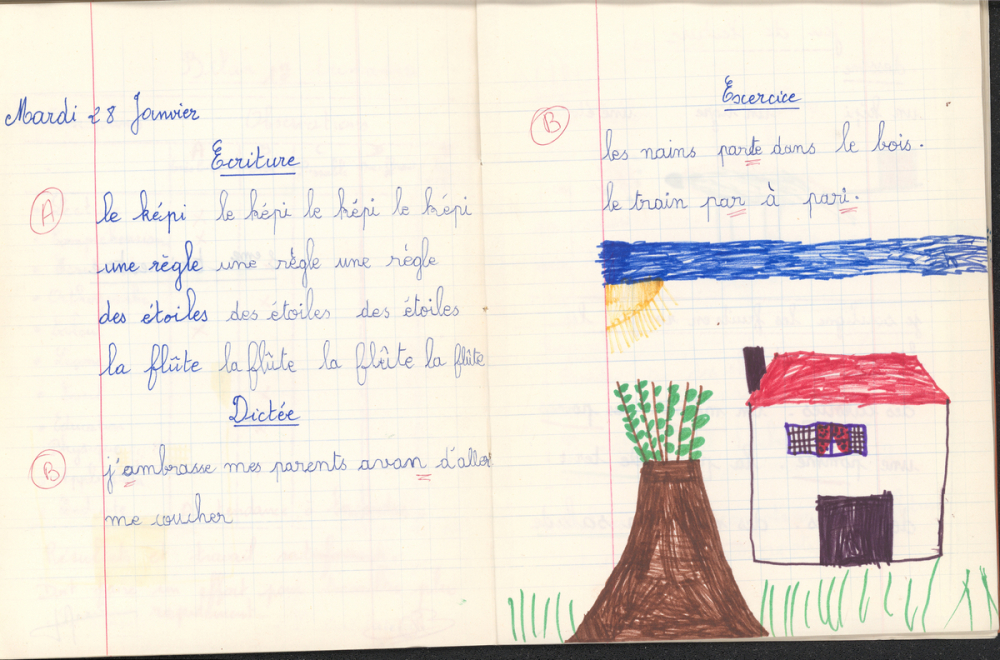 Mardi 28 Janvier
Ecriture
A
le képi le képi le képi le képi
une règle une régle une régle
des étoiles des étoiles des étoiles
la flûte la flûte la flûte la flûte
Dictée
B
j'ambrasse mes parents avan d'aller
me coucher
Exercice
B
les nains parte dans le bois.
le train par à pari.